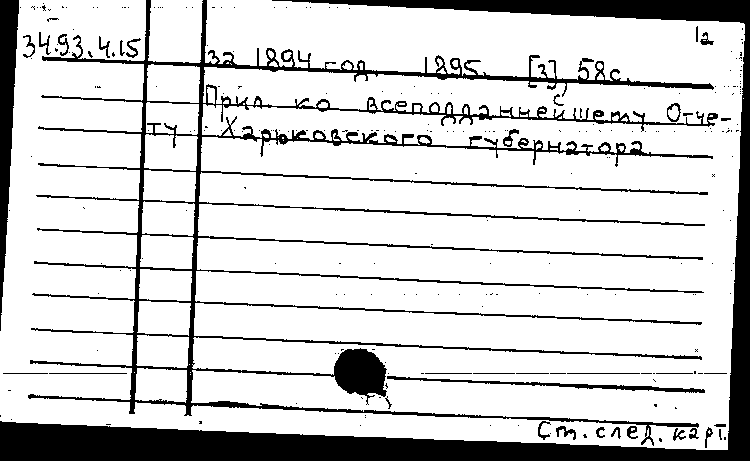 12
34.93.4.15 за 1894 год. 1895. [3], 58с.
Прил. ко всеподданнейшему Отче-
ту Харьковского губернатора.
См. след. карт.